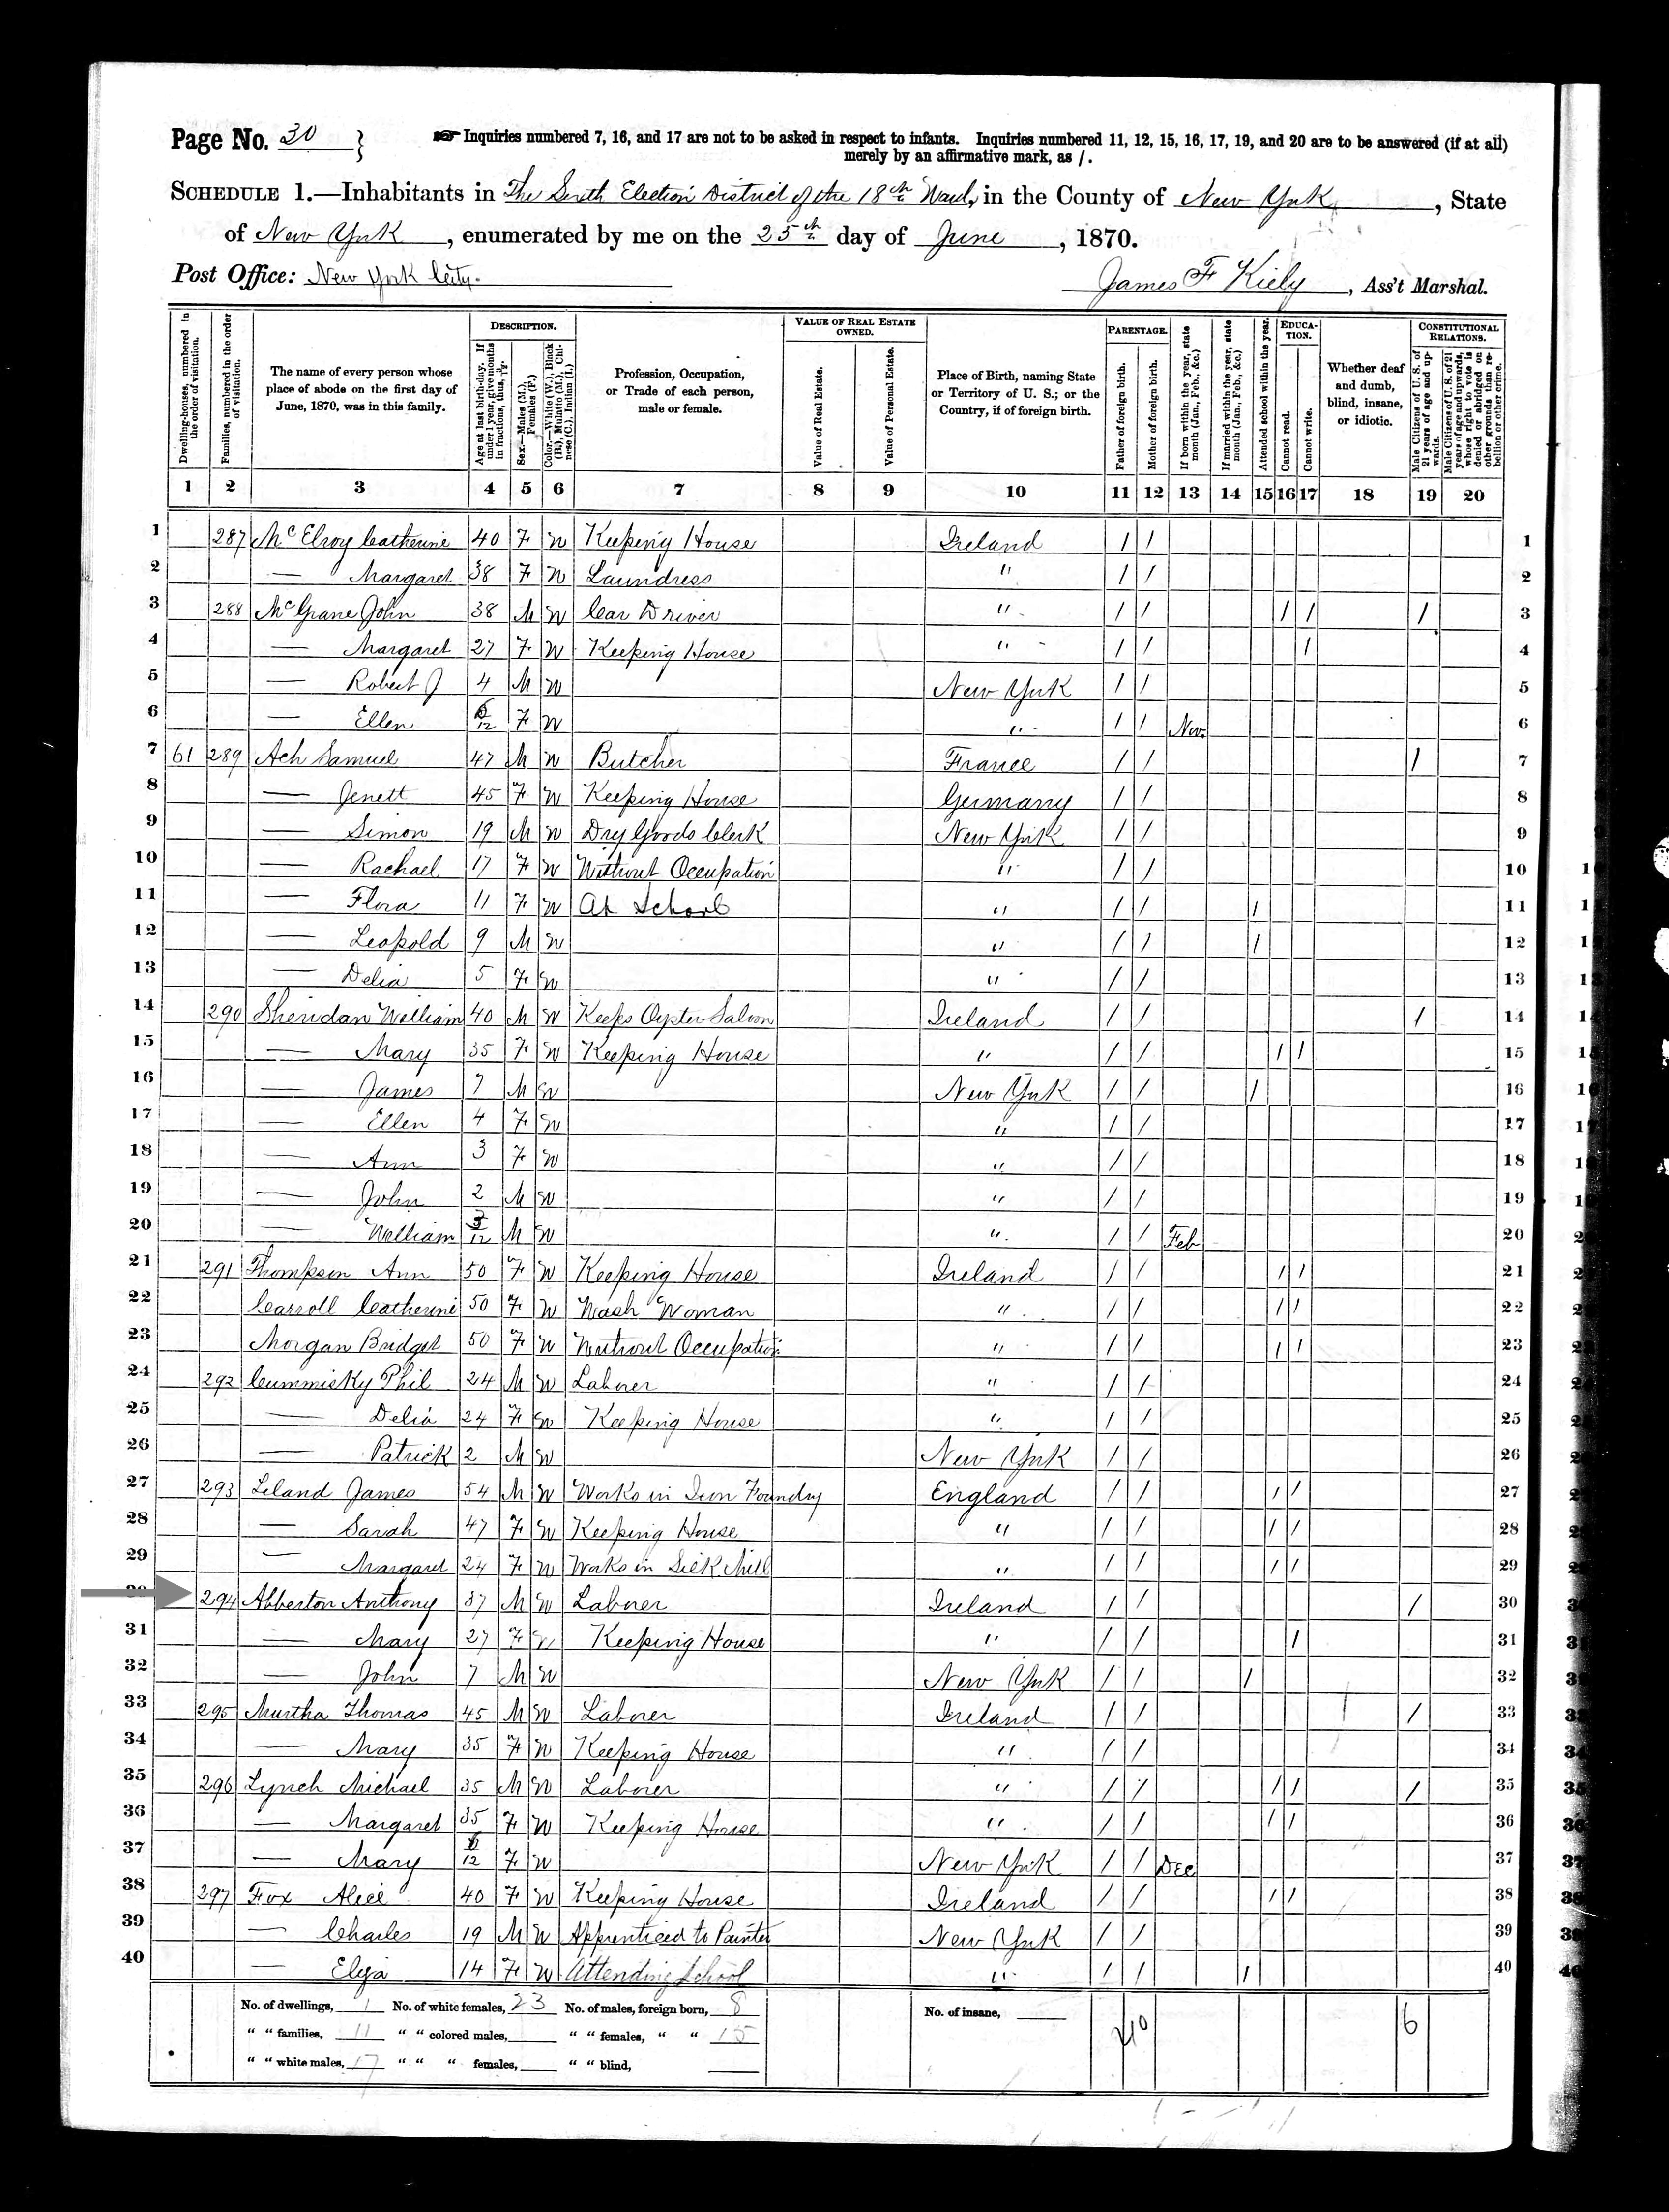 Page No. 30 }
Inquiries numbered 7, 16, and 17 are not to be asked in respect to infants. Inquiries numbered 11, 12, 15, 16, 17, 19, and 20 are to be answered (if at all)
merely by an affirmative mark, as /.
SCHEDULE 1.—Inhabitants in The Sixth Election District of the 18th Ward, in the County of New York, State
of New York, enumerated by me on the 25th day of June, 1870.
Post Office: New York City.
James F Kiely, Ass't Marshal.
Dwelling-houses, numbered in the order of visitation.
Families, numbered in the order of visitation.
The name of every person whose place of abode on the first day of June, 1870, was in this family.
DESCRIPTION.
Age at last birth-day. If under 1 year, give months in fractions, thus, 3/12.
Sex.—Males (M.), Females (F.)
Color.—White (W.), Black (B.), Mulatto (M.), Chinese (C.), Indian (I.)
Profession, Occupation, or Trade of each person, male or female.
VALUE OF REAL ESTATE OWNED.
Value of Real Estate.
Value of Personal Estate.
Place of Birth, naming State or Territory of U. S.; or the Country, if of foreign birth.
PARENTAGE.
Father of foreign birth.
Mother of foreign birth.
If born within the year, state month (Jan., Feb., &c.)
If married within the year, state month (Jan., Feb., &c.)
Attended school within the year.
EDUCATION.
Cannot read.
Cannot write.
Whether deaf and dumb, blind, insane, or idiotic.
CONSTITUTIONAL RELATIONS.
Male Citizens of U. S. of 21 years of age and upwards.
Male Citizens of U. S. of 21 years of age and upwards, whose right to vote is denied or abridged on other grounds than rebellion or other crime.
1 2 3 4 5 6 7 8 9 10 11 12 13 14 15 16 17 18 19 20
1 287 McElroy Catherine 40 F W Keeping House Ireland / / 1
2 — Margaret 38 F W Laundress " / / 2
3 288 McGrane John 38 M W Car Driver " / / / / / 3
4 — Margaret 27 F W Keeping House " / / / 4
5 — Robert J 4 M W New York / / 5
6 — Ellen 6/12 F W " / / Nov. 6
7 61 289 Ach Samuel 47 M W Butcher France / / / 7
8 — Jenett 45 F W Keeping House Germany / / 8
9 — Simon 19 M W Dry Goods Clerk New York / / 9
10 — Rachael 17 F W Without Occupation " / / 10
11 — Flora 11 F W At School " / / / 11
12 — Leopold 9 M W " / / / 12
13 — Delia 5 F W " / / 13
14 290 Sheridan William 40 M W Keeps Oyster Saloon Ireland / / / 14
15 — Mary 35 F W Keeping House " / / / / 15
16 — James 7 M W New York / / / 16
17 — Ellen 4 F W " / / 17
18 — Ann 3 F W " / / 18
19 — John 2 M W " / / 19
20 — William 3/12 M W " / / Feb 20
21 291 Thompson Ann 50 F W Keeping House Ireland / / / / 21
22 Carroll Catherine 50 F W Wash Woman " / / / / 22
23 Morgan Bridget 50 F W Without Occupation " / / / / 23
24 292 Cummisky Phil 24 M W Laborer " / / 24
25 — Delia 24 F W Keeping House " / / 25
26 — Patrick 2 M W New York / / 26
27 293 Leland James 54 M W Works in Iron Foundry England / / / / 27
28 — Sarah 47 F W Keeping House " / / / / 28
29 — Margaret 24 F W Works in Silk Mill " / / / / 29
294 Abberton Anthony 37 M W Laborer Ireland / / / 30
31 — Mary 27 F W Keeping House " / / / 31
32 — John 7 M W New York / / / 32
33 295 Murtha Thomas 45 M W Laborer Ireland / / / 33
34 — Mary 35 F W Keeping House " / / 34
35 296 Lynch Michael 35 M W Laborer " / / / / / 35
36 — Margaret 35 F W Keeping House " / / / / 36
37 — Mary 6/12 F W New York / / Dec 37
38 297 Fox Alice 40 F W Keeping House Ireland / / / / 38
39 — Charles 19 M W Apprenticed to Painter New York / / 39
40 — Eliza 14 F W Attending School " / / / 40
No. of dwellings, 1 No. of white females, 23 No. of males, foreign born, 8 No. of insane,
" " families, 11 " " colored males, " " females, " " 15
" " white males, 17 " " " females, " " blind,
40 6